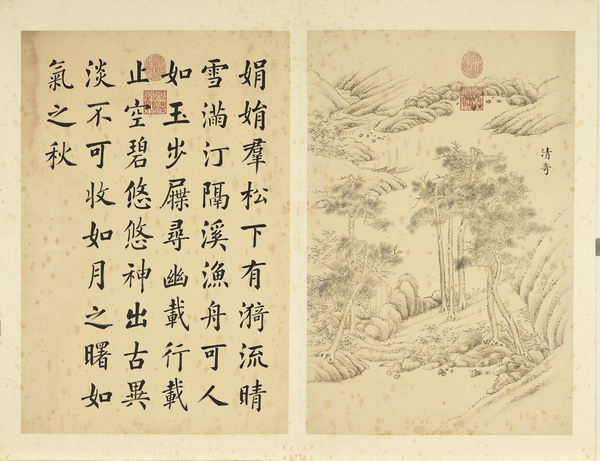 清奇
娟娟羣松下有漪流晴
雪滿汀隔溪漁舟可人
如玉步屧尋幽載行載
止空碧悠悠神出古異
淡不可收如月之曙如
氣之秋